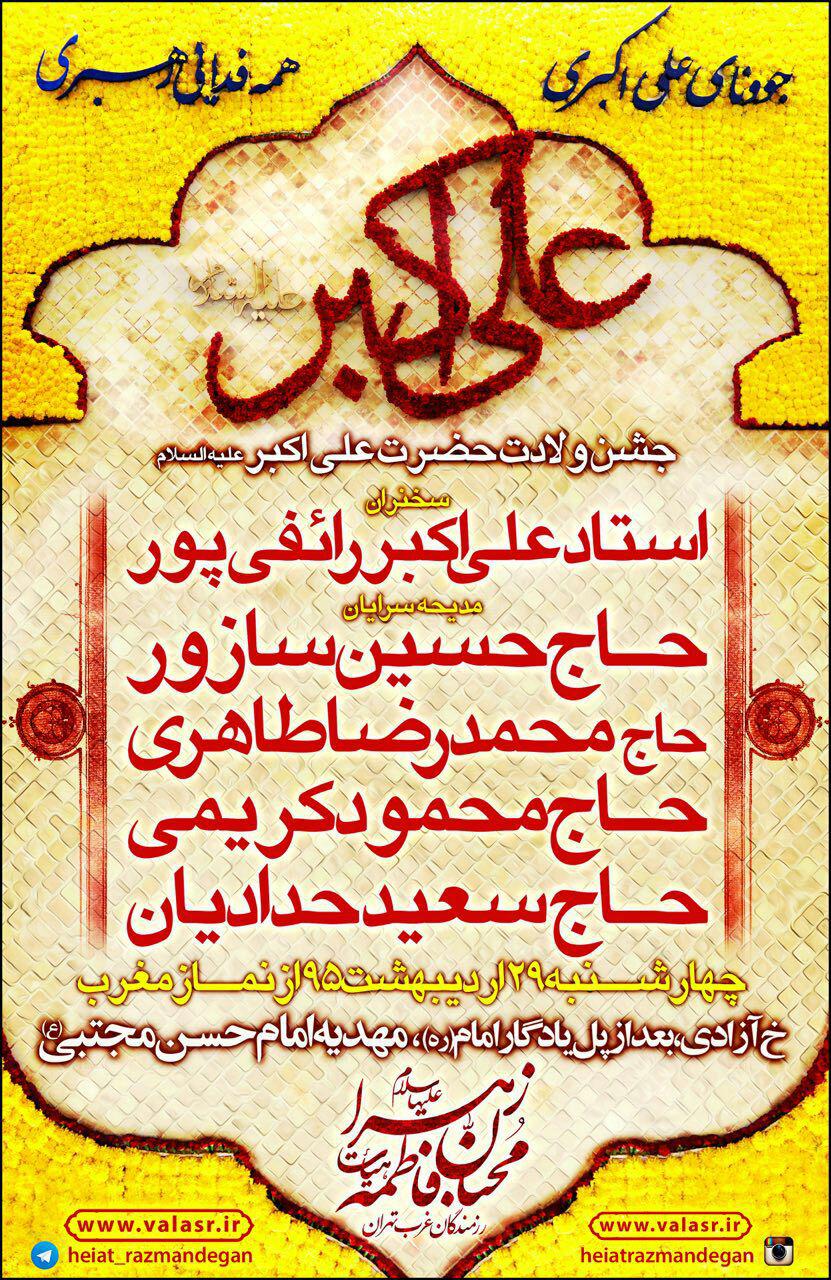 جوونای علی اکبری
همه فدائی رهبری
علی اکبر
علیه السلام
جشن ولادت حضرت علی اکبر علیه السلام
سخنران
استاد علی اکبر رائفی پور
مدیحه سرایان
حاج حسین سازور
حاج محمدرضا طاهری
حاج محمود کریمی
حاج سعید حدادیان
چهارشنبه ۲۹ اردیبهشت ۹۵ از نماز مغرب
خ آزادی، بعد از پل یادگار امام (ره)، مهدیه امام حسن مجتبی (ع)
هیأت محبان فاطمه زهرا علیها سلام
رزمندگان غرب تهران
www.valasr.ir
www.valasr.ir
heiat_razmandegan
heiatrazmandegan